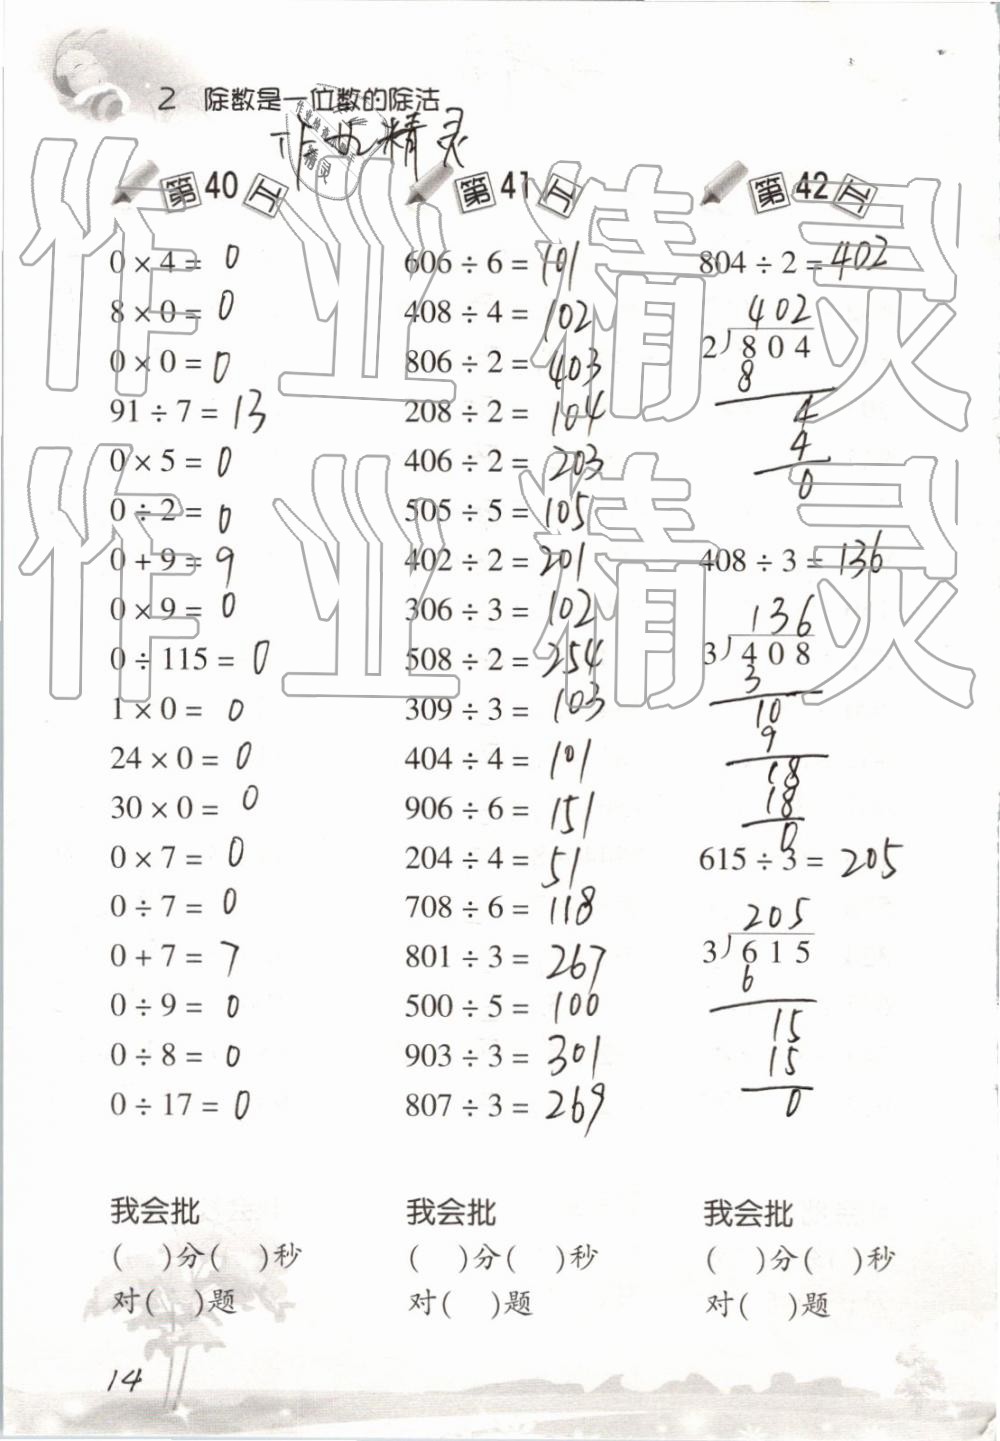 2 除数是一位数的除法
作业精灵
第40工
0 × 4 = 0
8 × 0 = 0
0 × 0 = 0
91 ÷ 7 = 13
0 × 5 = 0
0 ÷ 2 = 0
0 + 9 = 9
0 × 9 = 0
0 ÷ 115 = 0
1 × 0 = 0
24 × 0 = 0
30 × 0 = 0
0 × 7 = 0
0 ÷ 7 = 0
0 + 7 = 7
0 ÷ 9 = 0
0 ÷ 8 = 0
0 ÷ 17 = 0
我会批
( )分( )秒
对( )题
第41工
606 ÷ 6 = 101
408 ÷ 4 = 102
806 ÷ 2 = 403
208 ÷ 2 = 104
406 ÷ 2 = 203
505 ÷ 5 = 105
402 ÷ 2 = 201
306 ÷ 3 = 102
508 ÷ 2 = 254
309 ÷ 3 = 103
404 ÷ 4 = 101
906 ÷ 6 = 151
204 ÷ 4 = 51
708 ÷ 6 = 118
801 ÷ 3 = 267
500 ÷ 5 = 100
903 ÷ 3 = 301
807 ÷ 3 = 269
我会批
( )分( )秒
对( )题
第42工
804 ÷ 2 = 402
402
2)804
8
4
4
0
408 ÷ 3 = 136
136
3)408
3
10
9
18
18
0
615 ÷ 3 = 205
205
3)615
6
15
15
0
我会批
( )分( )秒
对( )题
14
作业精灵
作业精灵